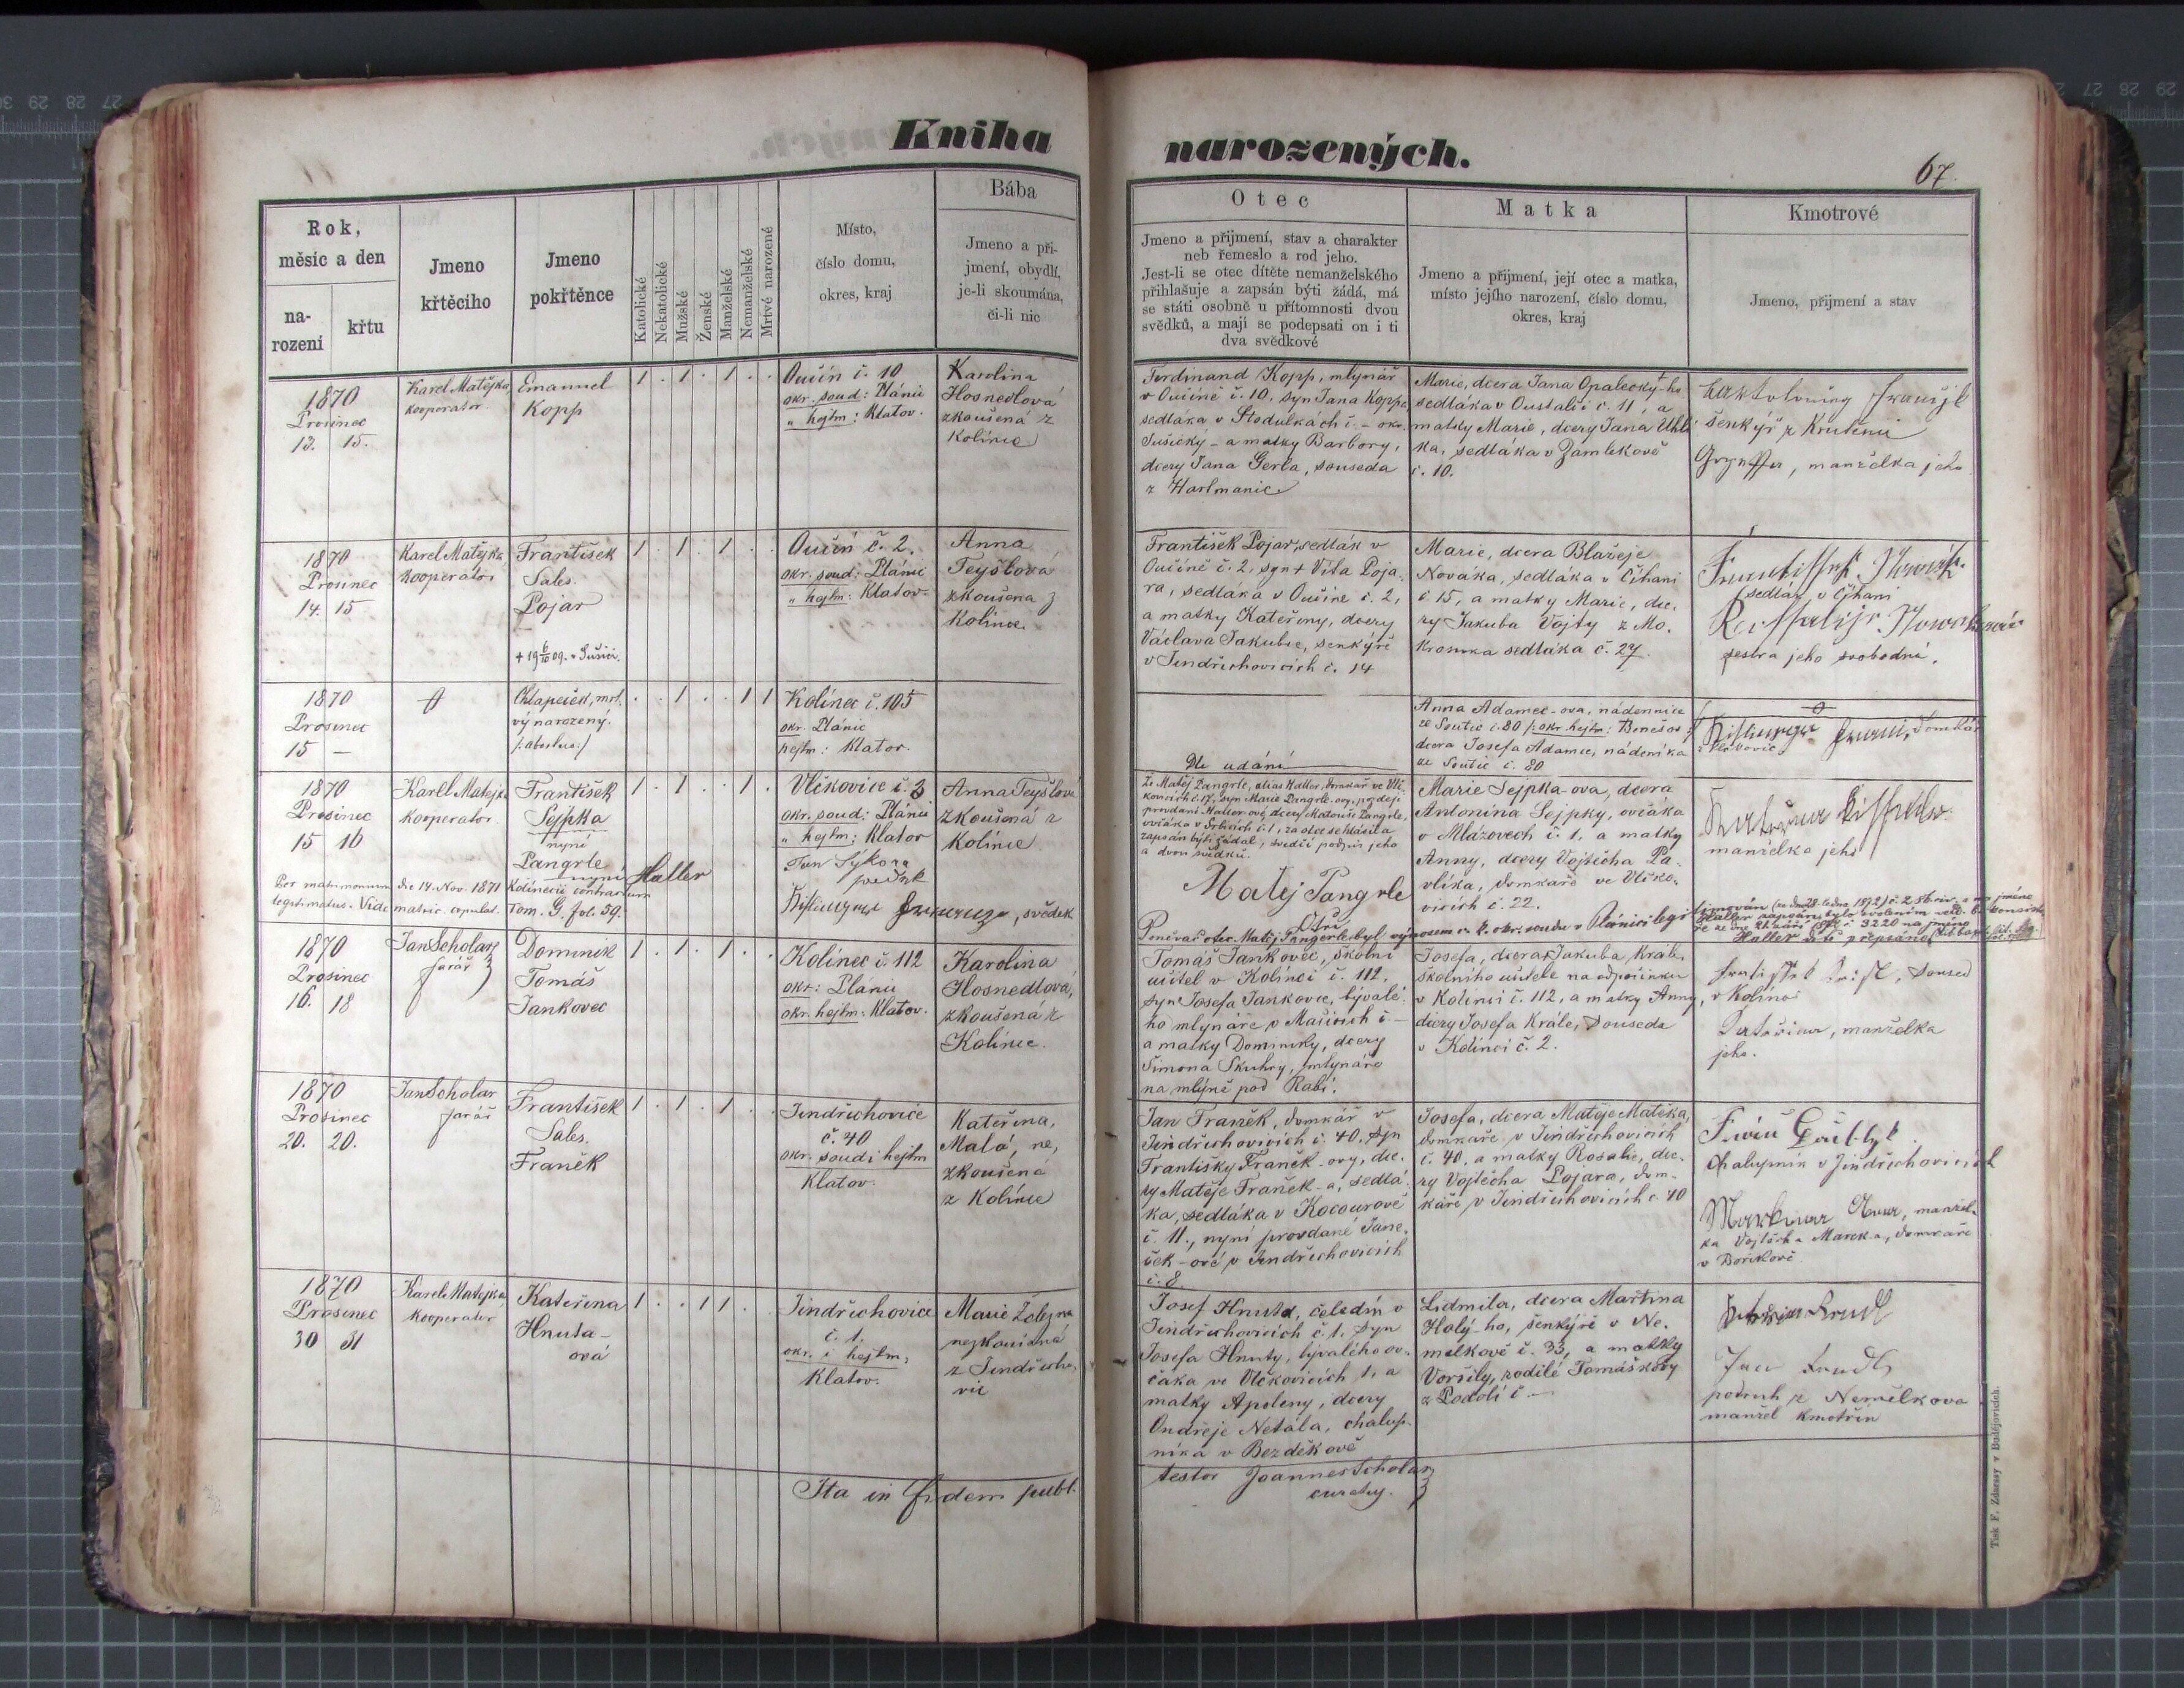 Kniha
narozených.
67.
Rok,
měsíc a den
na-
rození
křtu
Jmeno
křtěcího
Jmeno
pokřtěnce
Katolické
Nekatolické
Mužské
Ženské
Manželské
Nemanželské
Mrtvé narozené
Místo,
číslo domu,
okres, kraj
Bába
Jmeno a při-
jmení, obydlí,
je-li skoumána,
či-li nic
Otec
Jmeno a přijmení, stav a charakter
neb řemeslo a rod jeho.
Jest-li se otec dítěte nemanželského
přihlašuje a zapsán býti žádá, má
se státi osobně u přítomnosti dvou
svědků, a mají se podepsati on i ti
dva svědkové
Matka
Jmeno a přijmení, její otec a matka,
místo jejího narození, číslo domu,
okres, kraj
Kmotrové
Jmeno, přijmení a stav
1870
Prosinec
13. 15.
Karel Matějka
kooperator
Emanuel
Kopp
1 . 1 . 1 . .
Oučín č. 10
okr. soud: Plánic
" hejtm: Klatov.
Karolina
Hosnedlová
zkoušená z
Kolince
Ferdinand Kopp, mlynář
v Oučíně č. 10, syn Jana Koppa
sedláka v Stodulkách č. – okr.
Sušický – a matky Barbory,
dcery Jana Gerla, souseda
z Hartmanic
Marie, dcera Jana Opalecký-ho
sedláka v Oustalči č. 11, a
matky Marie, dcery Jana Uhlí
ka, sedláka v Zamlekově
č. 10.
šenkýř z
manželka jeho
1870
Prosinec
14. 15
Karel Matějka
kooperator
František
Sales.
Pojar
+ 19 6/10 09. v Sušici.
1 . 1 . 1 . .
Oučín č. 2.
okr. soud: Plánic
" hejtm: Klatov.
Anna
Teyšlová
zkoušená z
Kolince.
František Pojar, sedlák v
Oučíně č. 2, syn + Víta Poja-
ra, sedláka v Oučíně č. 2,
a matky Kateřiny, dcery
Václava Jakubce, šenkýře
v Jindřichovicích č. 14
Marie, dcera Blažeje
Nováka, sedláka v Číhani
č 15, a matky Marie, dce-
ry Jakuba Vojty z Mo-
krosuka sedláka č. 27.
sedlák v Číhani
sestra jeho svobodná.
1870
Prosinec
15 —
Chlapeček, mrt-
vý narozený.
/: abortus :/
. . 1 . . 1 1
Kolinec č. 105
okr. Plánic
hejtm: Klatov.
Anna Adamec-ova, nádennice
ze Soutic č. 80 /: okr hejtm: Benešov :/
dcera Josefa Adamce, nádeníka
ze Soutic č. 80
1870
Prosinec
15 16
Karel Matejka
kooperator.
František
Sejpka
nyní
Pangrle
nyní Haller
1 . 1 . . 1 .
Vlčkovice č. 3
okr. soud: Plánic
" hejtm: Klatov
Jan Sýkora
svědek
, svědek
Anna Teyšlová
zkoušená z
Kolince
Per matrimonium die 14. Nov. 1871 Kolinecii contractum
legitimatus. Vide matric. copulat. Tom. G. fol. 59.
Dle udání
že Matěj Pangrle, alias Haller, domkář ve Vlč-
kovicích č. 17, syn Marie Pangrle-ovy, později
provdané Haller-ové, dcery Matouše Pangrle,
ovčáka v Srbicích č. 1, za otce se hlásil a
zapsán býti žádal, svědčí podpis jeho
a dvou svědků.
Matej Pangrle
Marie Sejpka-ova, dcera
Antonína Sejpky, ovčáka
v Mlázovech č. 1. a matky
Anny, dcery Vojtěcha Pa-
vlíka, domkáře ve Vlčko-
vicích č. 22.
manželka jeho
Poněvač otec Matěj Pangerle byl výnosem c. k. okr. soudu v Plánici legitimován
1870
Prosinec
16. 18
Jan Scholarz
farář
Dominik
Tomáš
Jankovec
1 . 1 . 1 . .
Kolinec č. 112
okr: Plánic
okr. hejtm: Klatov.
Karolina
Hosnedlová,
zkoušená z
Kolince.
Tomáš Jankovec, školní
učitel v Kolinci č. 112,
syn Josefa Jankovce, bývalé-
ho mlynáře v Mačicích č –
a matky Dominiky, dcery
Šimona Skuhry, mlynáře
na mlýně pod Rabí.
Josefa, dcera Jakuba Krále,
školního učitele na odpočinku
v Kolinci č. 112, a matky Anny,
dcery Josefa Krále, souseda
v Kolinci č. 2.
soused
v Kolinci
manželka
jeho.
1870
Prosinec
20. 20.
Jan Scholar
farář
František
Sales.
Franěk
1 . 1 . 1 . .
Jindřichovice
č. 40
okr. soud i hejtm
Klatov.
Kateřina,
Malá, ne,
zkoušená
z Kolince
Jan Franěk, domkář v
Jindřichovicích č. 40, syn
Františky Franěk-ovy, dce-
ry Matěje Franěk-a, sedlá-
ka, sedláka v Kocourově
č. 11., nyní provdané Jane-
ček-ové v Jindřichovicích
č. 8.
Josefa, dcera Matěje Matěka,
domkáře v Jindřichovicích
č. 40, a matky Rosalie, dce-
ry Vojtěcha Pojara, dom-
káře v Jindřichovicích č. 40
chalupník v Jindřichovicích
manžel-
ka Vojtěcha Marek-a, domkáře
v Boříkově
1870
Prosinec
30 31
Karel Matejka
kooperator
Kateřina
Hnuta-
ová
1 . . 1 1 . .
Jindřichovice
č. 1.
okr. i hejtm,
Klatov.
Marie
nezkoušená
z Jindřicho-
vic
Josef Hnuta, čeledín v
Jindřichovicích č. 1, syn
Josefa Hnuty, bývalého ov-
čáka ve Vlčkovicích 1, a
matky Apoleny, dcery
Ondřeje Netála, chalup-
níka v Bezděkově
Lidmila, dcera Martina
Holý-ho, šenkýře v Ne-
melkově č. 33, a matky
Voršily, rodilé Tomáškovy
z Podolí č —
podruh z Nemělkova
manžel kmotřin
Ita in fidem publ.
testor Joannes Scholarz
curatus.
Tisk F. Zdarssy v Budějovicích.